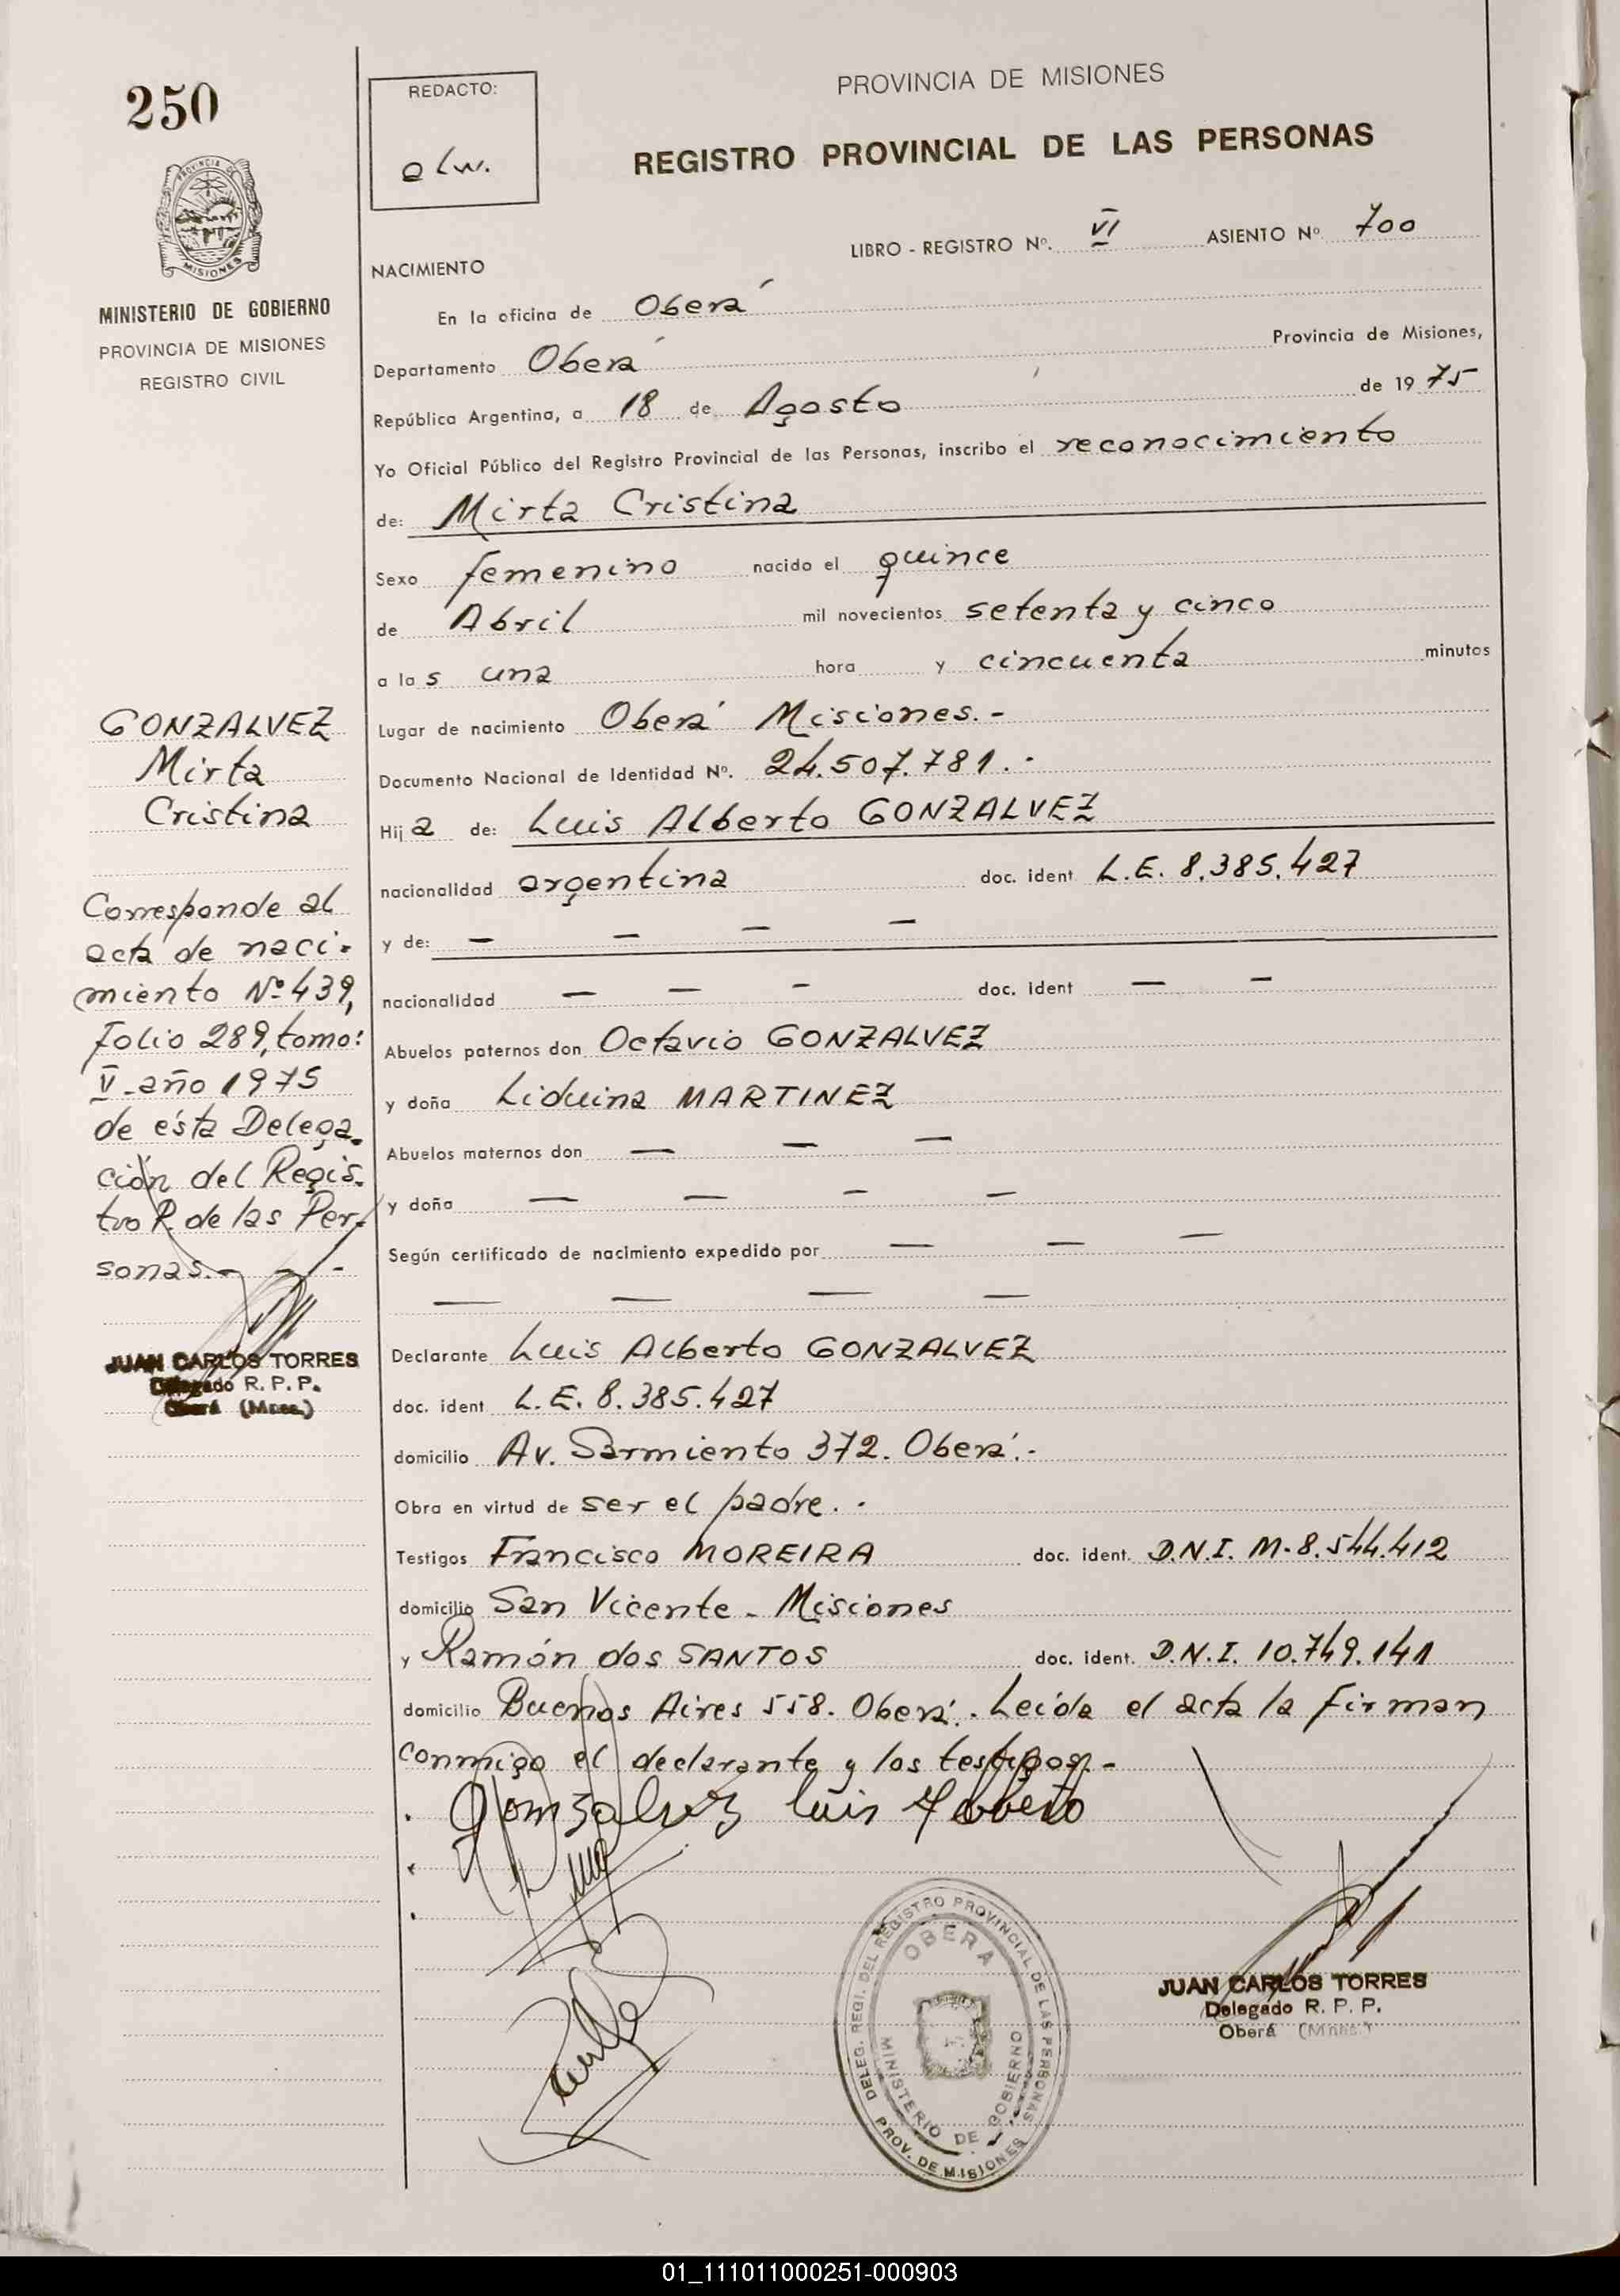 250
REDACTO:
elw.
PROVINCIA DE MISIONES
REGISTRO PROVINCIAL DE LAS PERSONAS
LIBRO - REGISTRO Nº. VI ASIENTO Nº 700
PROVINCIA DE
MISIONES
MINISTERIO DE GOBIERNO
PROVINCIA DE MISIONES
REGISTRO CIVIL
NACIMIENTO
En la oficina de Oberá
Departamento Oberá Provincia de Misiones,
República Argentina, a 18 de Agosto de 1975
Yo Oficial Público del Registro Provincial de las Personas, inscribo el reconocimiento
de: Mirta Cristina
Sexo femenino nacido el quince
de Abril mil novecientos setenta y cinco
a las una hora y cincuenta minutos
Lugar de nacimiento Oberá Misiones.-
Documento Nacional de Identidad Nº. 24.507.781.-
Hija de: Luis Alberto GONZALVEZ
nacionalidad argentina doc. ident L.E. 8.385.427
y de: — — — —
nacionalidad — — — doc. ident — —
Abuelos paternos don Octavio GONZALVEZ
y doña Liduina MARTINEZ
Abuelos maternos don — — —
y doña — — — —
Según certificado de nacimiento expedido por — — —
— — — —
Declarante Luis Alberto GONZALVEZ
doc. ident L.E. 8.385.427
domicilio Av. Sarmiento 372. Oberá.-
Obra en virtud de ser el padre.-
Testigos Francisco MOREIRA doc. ident. D.N.I. M-8.544.412
domicilio San Vicente - Misiones
y Ramón dos SANTOS doc. ident. D.N.I. 10.749.141
domicilio Buenos Aires 558. Oberá.- Leída el acta la firman
conmigo el declarante y los testigos.-
Gonzalvez luis Alberto
GONZALVEZ
Mirta
Cristina
Corresponde al
acta de naci-
miento Nº 439,
Folio 289, tomo:
V-año 1975
de ésta Delega-
ción del Regis-
tro P. de las Per-
sonas.- - -
JUAN CARLOS TORRES
Delegado R. P. P.
Oberá (Mnes.)
DELEG. REGI. DEL REGISTRO PROVINCIAL DE LAS PERSONAS
OBERA
MINISTERIO DE GOBIERNO
PROV. DE MISIONES
JUAN CARLOS TORRES
Delegado R. P. P.
Oberá (Mnes.)
01_111011000251-000903